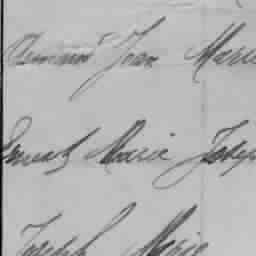 Jean Marie
Ernest Marie Joseph
Joseph Marie